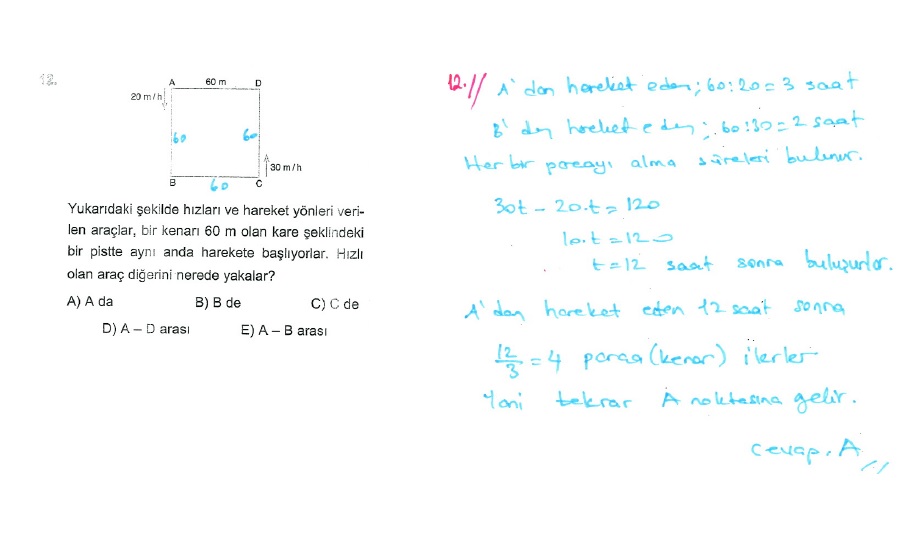 12.
A 60 m D
20 m/h
60 60
30 m/h
B 60 C
Yukarıdaki şekilde hızları ve hareket yönleri veri-
len araçlar, bir kenarı 60 m olan kare şeklindeki
bir pistte aynı anda harekete başlıyorlar. Hızlı
olan araç diğerini nerede yakalar?
A) A da B) B de C) C de
D) A – D arası E) A – B arası
12.// A' dan hareket eden; 60:20=3 saat
B' den hareket eden; 60:30=2 saat
Her bir parçayı alma süreleri bulunur.
30t - 20.t = 120
10.t = 120
t = 12 saat sonra buluşurlar.
A' dan hareket eden 12 saat sonra
12/3 = 4 parça (kenar) ilerler
Yani tekrar A noktasına gelir.
Cevap. A //